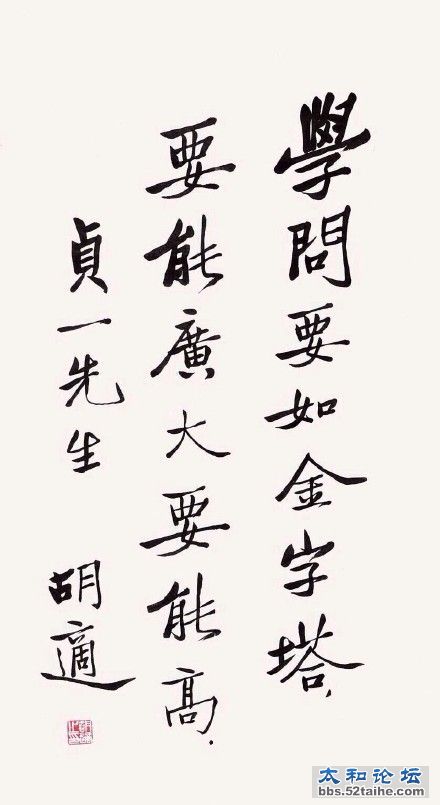 學問要如金字塔，
要能廣大要能高．
貞一先生
胡適
太和论坛
bbs.52taihe.com